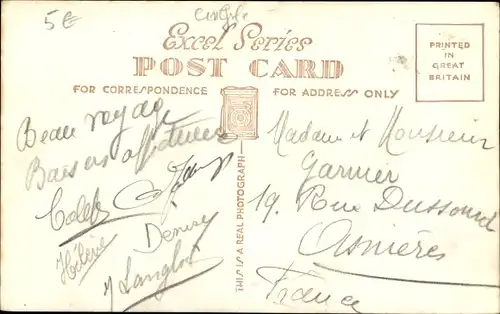 5€
Excel Series
POST CARD
FOR CORRESPONDENCE
FOR ADDRESS ONLY
PRINTED
IN
GREAT
BRITAIN
Beau voyage
Baisers affectueux
Colette
Hélène
Denise
Langlois
THIS IS A REAL PHOTOGRAPH
Madame et Monsieur
Garnier
19, Rue
Asnières
France